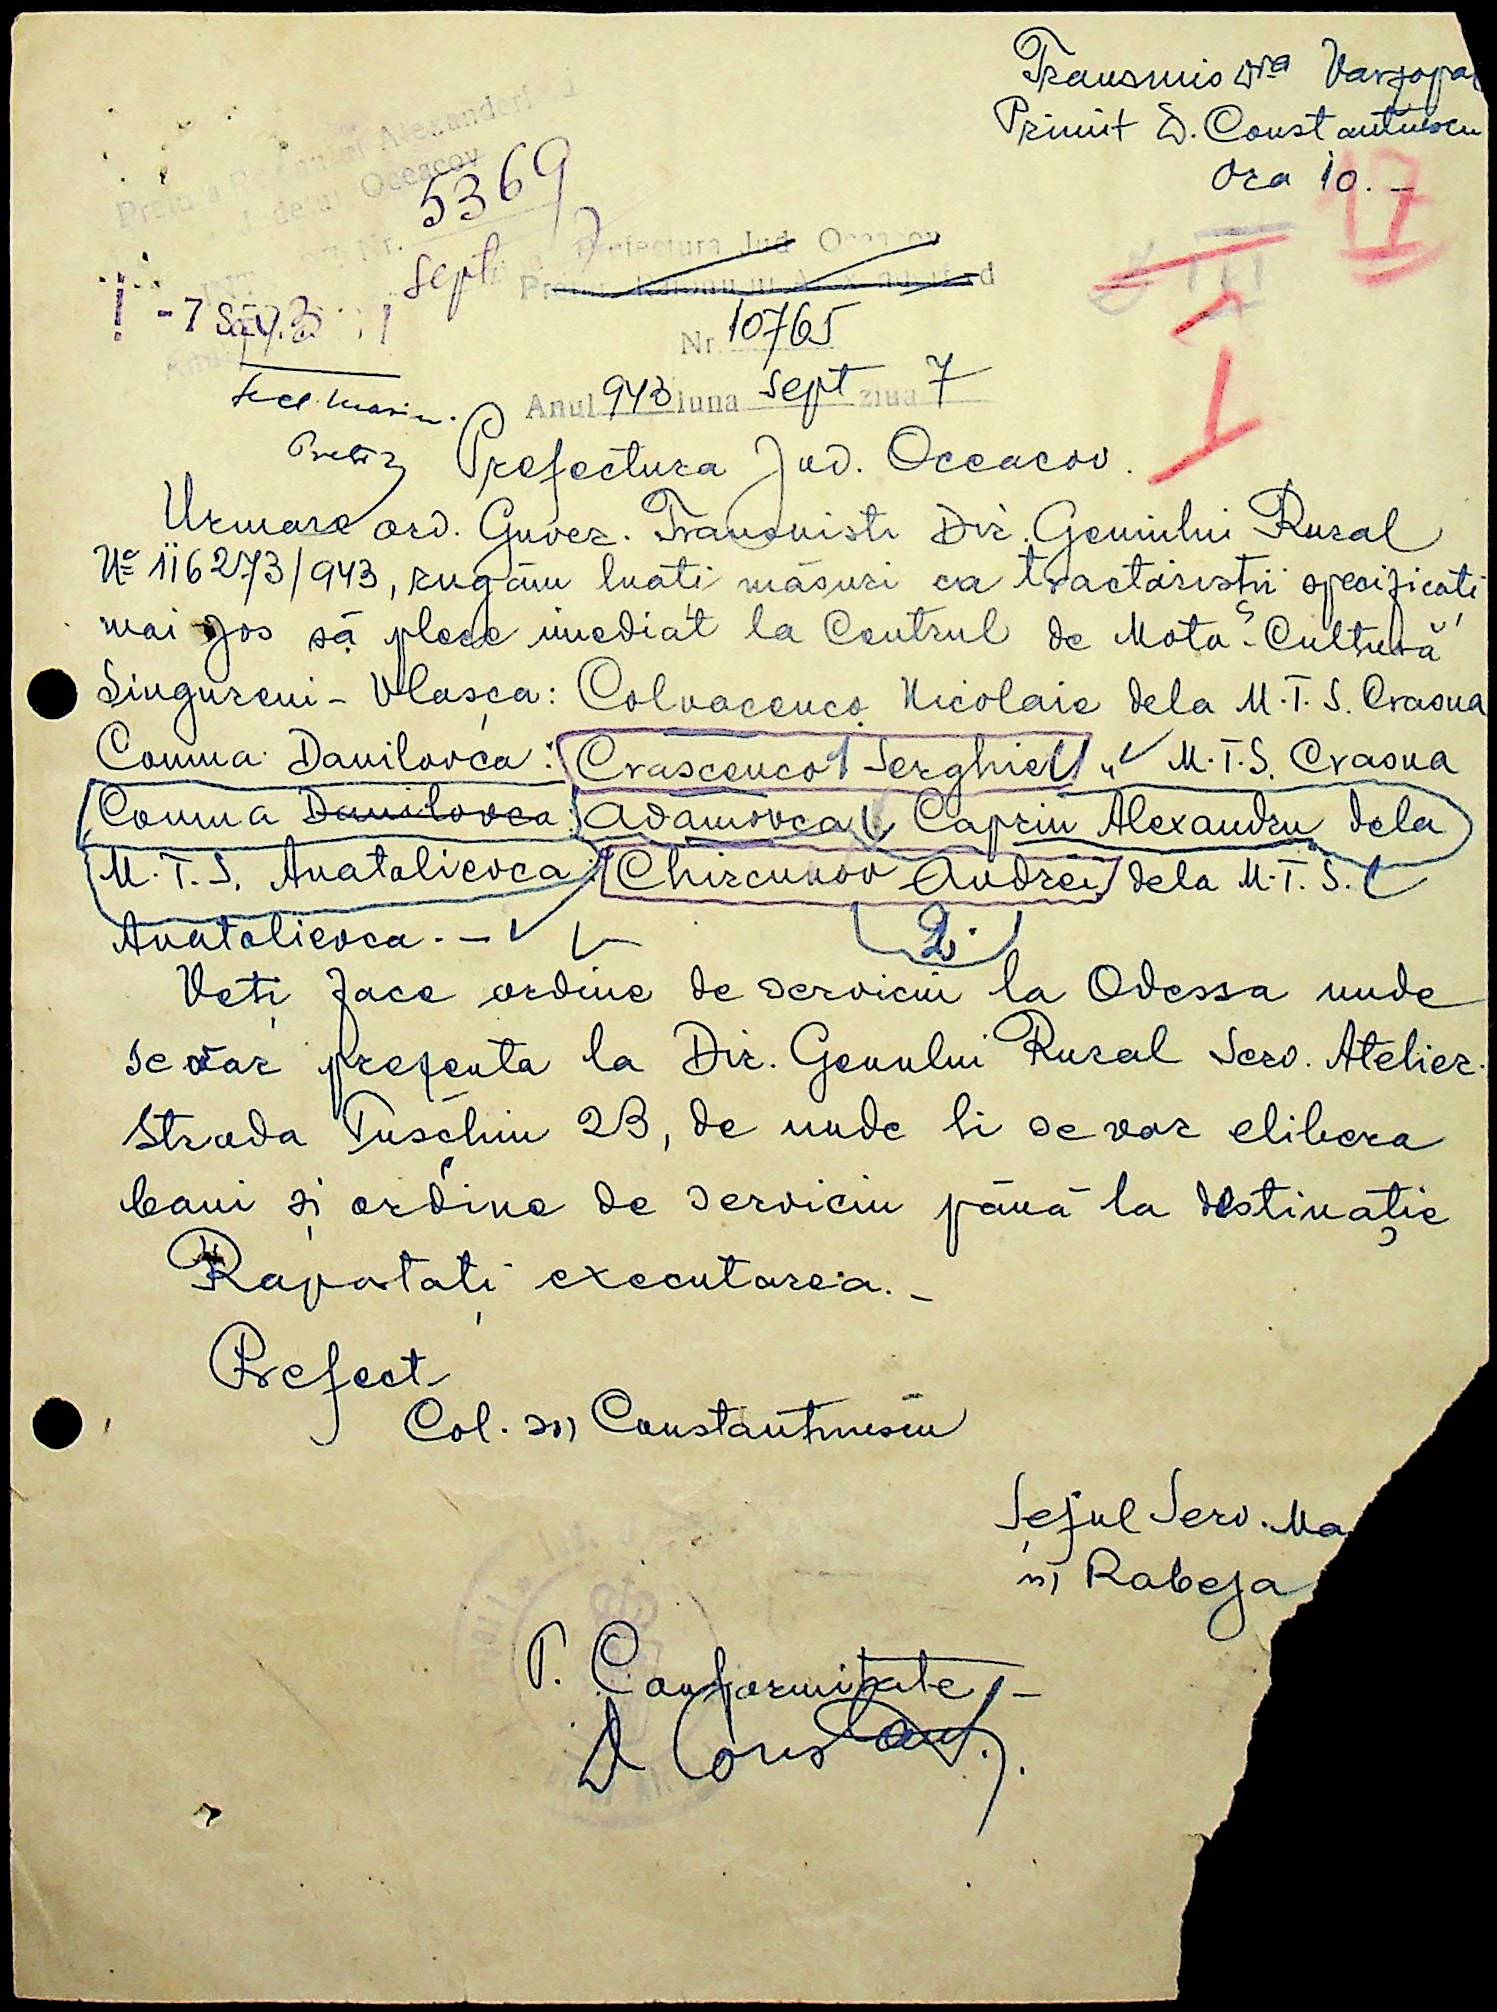 Transmis dra
Primit D. Constantinescu
Ora 10.-
17
Oceacov
Nr. 5369
Sept 7
- 7 Sep. 943
Prefectura Jud Oceacov
Nr. 10765
Anul 943 luna Sept ziua 7
I
Prefectura Jud. Oceacov.
Urmare ord. Guver. Transnistr Dir. Geniului Rural
No 116273/943, rugăm luați măsuri ca tractoriștii specificați
mai jos să plece imediat la Centrul de Moto-Cultură
Singureni - Vlașca: Colvacenco Nicolaie dela M.T.S. Crasna
Comuna Danilovca: Crascenco Serghiei " M.T.S. Crasna
Comuna Danilovca: Adamovca Caprin Alexandru dela
M.T.S. Anatolievca: Chircunov Andrei dela M.T.S.
Anatolievca. -
2.
Veți face ordine de serviciu la Odessa unde
se vor prezenta la Dir. Genului Rural Serv. Atelier.
Strada Pușchin 23, de unde li se vor elibera
bani și ordine de serviciu până la destinație
Raportați executarea. -
Prefect
Col. ss) Constantinescu
Șeful Serv. Ma
ss) Rabega
P. Conformitate
D Constant.